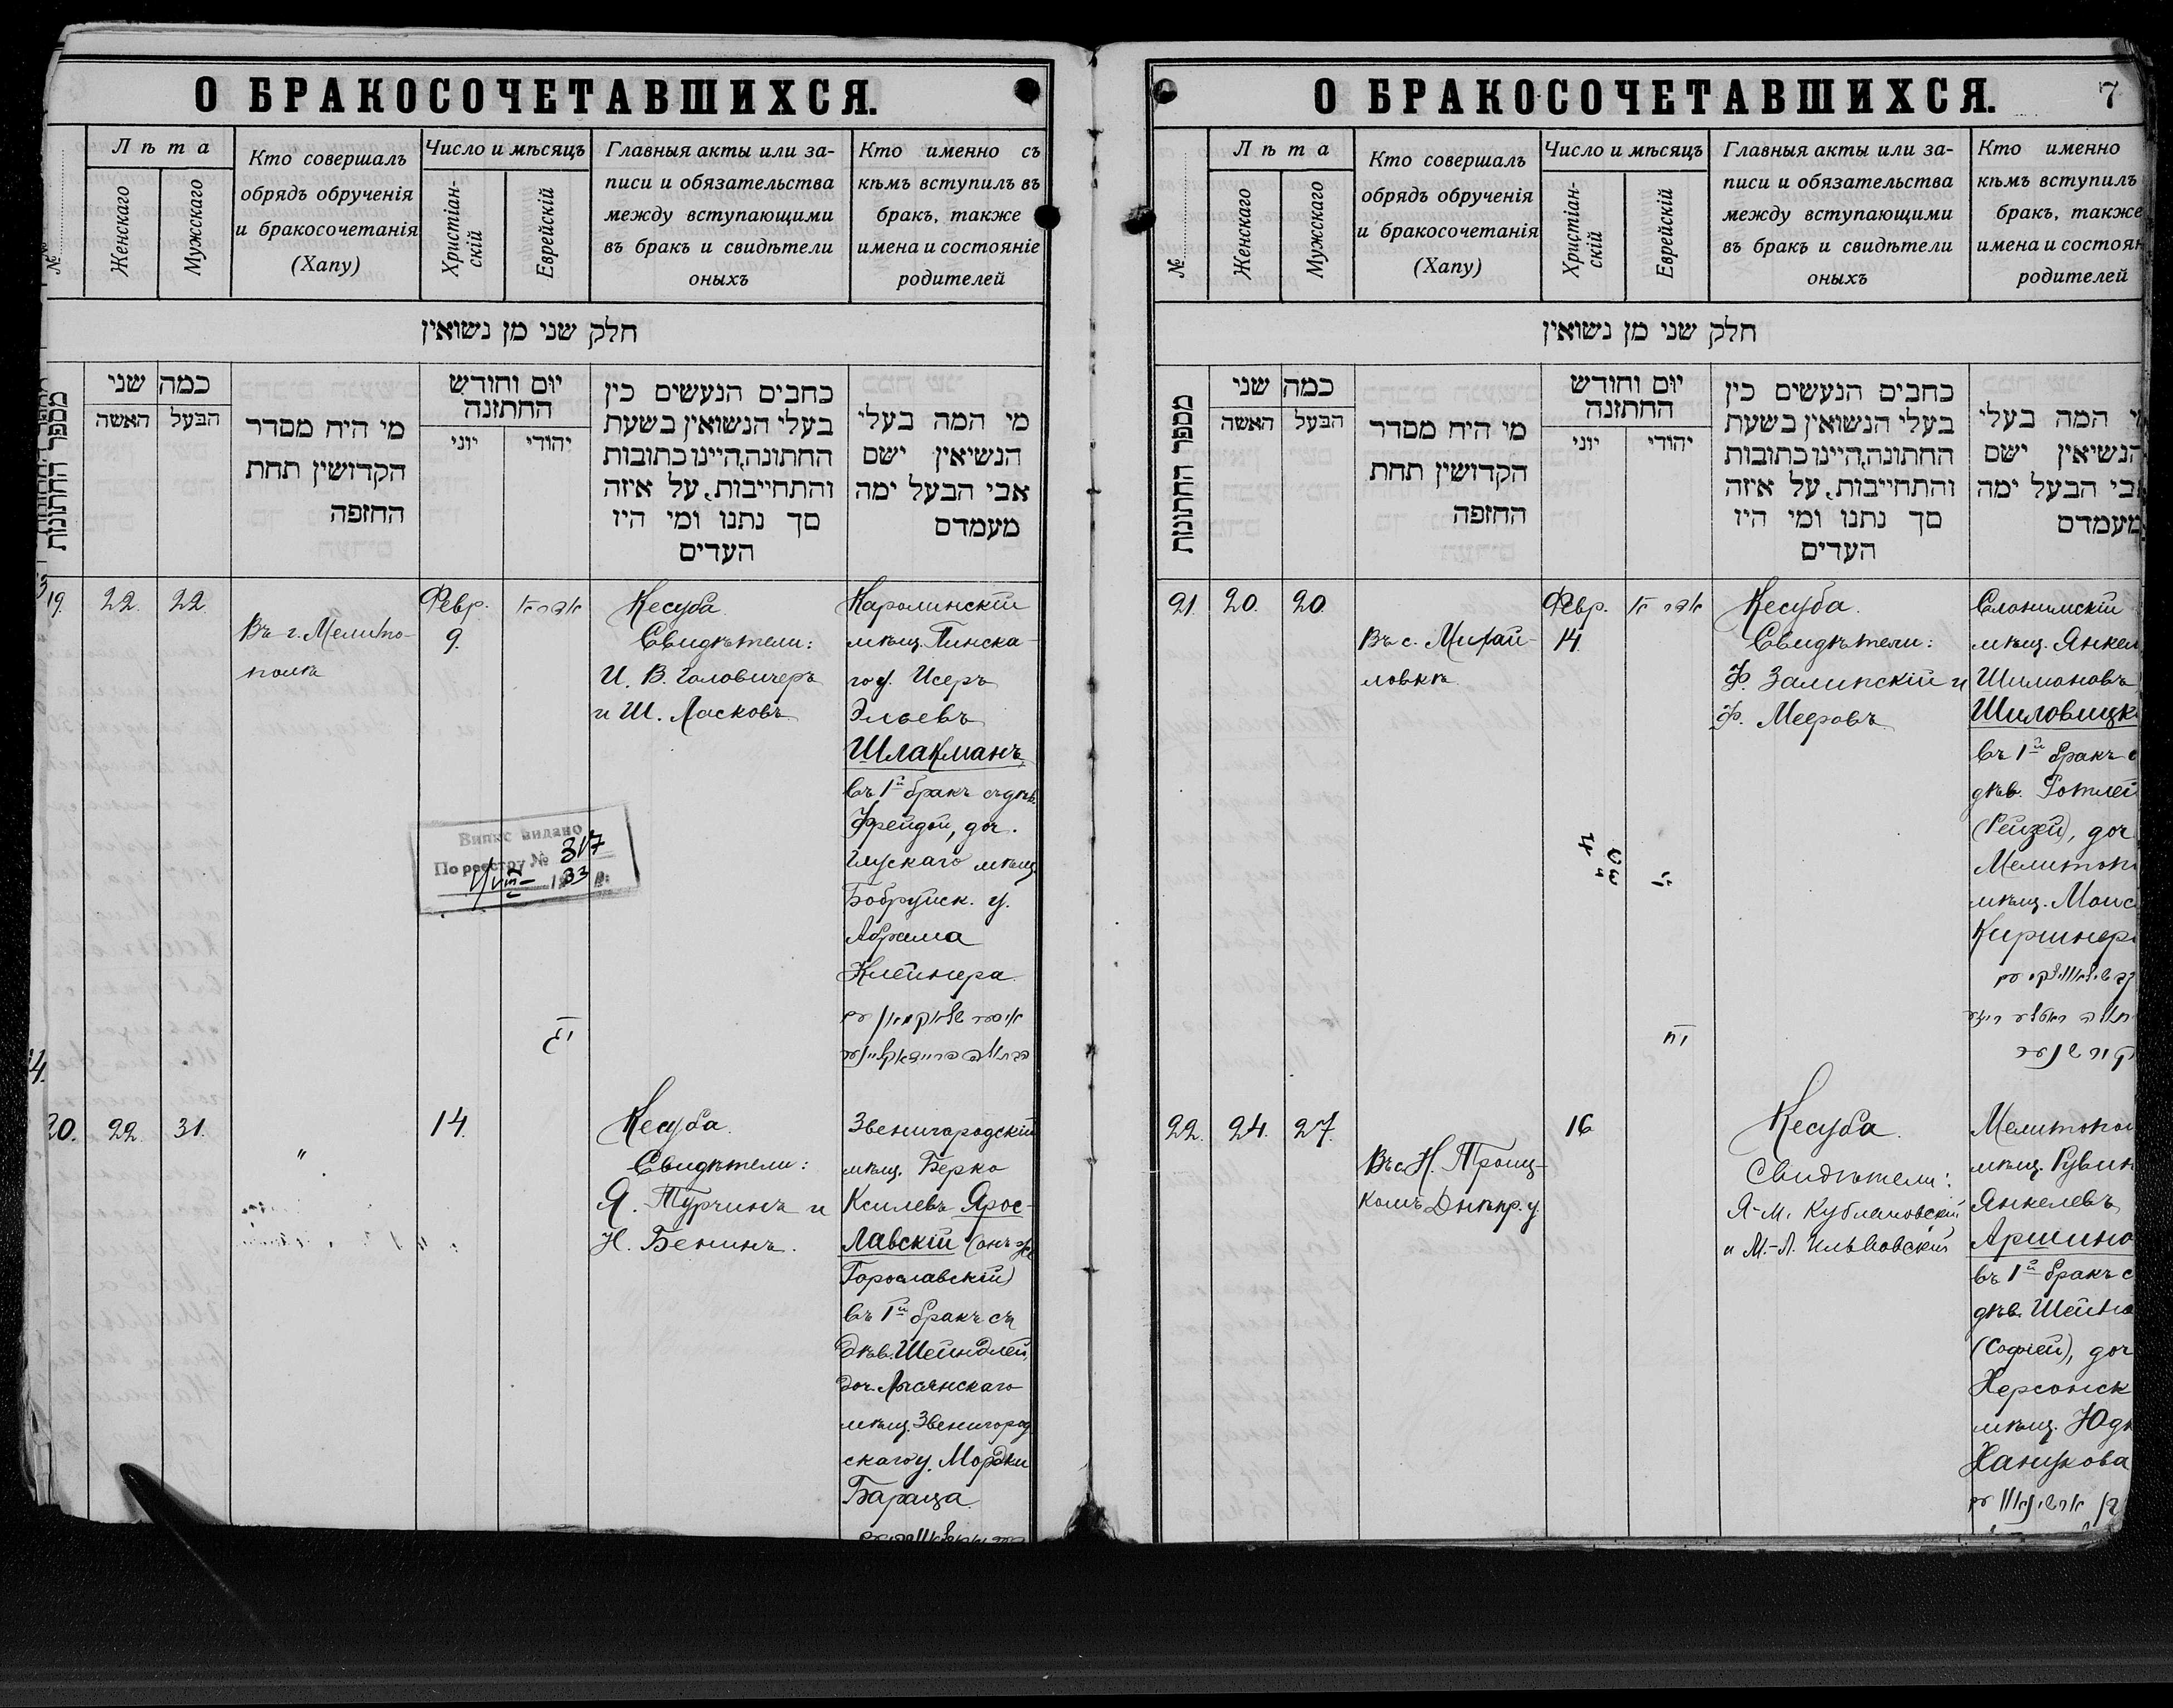 О БРАКОСОЧЕТАВШИХСЯ.
№
Лѣта
Женскаго
Мужскаго
Кто совершалъ
обрядъ обрученія
и бракосочетанія
(Хапу)
Число и мѣсяцъ
Христіан-
скій
Еврейскій
Главныя акты или за-
писи и обязательства
между вступающими
въ бракъ и свидѣтели
оныхъ
Кто именно съ
кѣмъ вступилъ въ
бракъ, также
имена и состояніе
родителей
חלק שני מן נשואין
מספר החתונות
כמה שני
האשה
הבעל
מי היח מסדר
הקדושין תחת
החזפה
יום וחודש
החתזנה
יוני
יהודי
כחבים הנעשים כין
בעלי הנשואין בשעת
החתונה,היינו כתובות
והתחייבות, על איזה
סך נתנו ומי היז
העדים
מי המה בעלי
הנשיאין ישם
אבי הבעל ימה
מעמדם
19. 22. 22.
Въ г. Мелито-
полѣ
Февр.
9.
אדר א
יג
Кесуба.
Свидѣтели:
И. В. Головичеръ
и Ш. Ласковъ
Каролинскій
мѣщ. Пинска-
го у. Исеръ
Эльевъ
Шлакманъ,
въ 1й бракъ съ дѣв.
Фрейдой, доч.
Глускаго мѣщ.
Бобруйск. у.
Абрама
Клейнера.
Випис видано
По реестру № 317
VIII 1933 р.
20. 22. 31.
"
14.
Кесуба.
Свидѣтели:
Я. Турчинъ и
Н. Бенинъ.
Звенигородскій
мѣщ. Берко
Ксилевъ Ярос-
лавскій (онъ же
Горославскій)
въ 1й бракъ съ
дѣв. Шейндлей,
доч. Лысянскаго
мѣщ. Звенигород
скаго у. Мордки
Бараца.
О БРАКОСОЧЕТАВШИХСЯ.
7
№
Лѣта
Женскаго
Мужскаго
Кто совершалъ
обрядъ обрученія
и бракосочетанія
(Хапу)
Число и мѣсяцъ
Христіан-
скій
Еврейскій
Главныя акты или за-
писи и обязательства
между вступающими
въ бракъ и свидѣтели
оныхъ
Кто именно
кѣмъ вступилъ
бракъ, также
имена и состоян
родителей
חלק שני מן נשואין
מספר החתונות
כמה שני
האשה
הבעל
מי היח מסדר
הקדושין תחת
החזפה
יום וחודש
החתזנה
יוני
יהודי
כחבים הנעשים כין
בעלי הנשואין בשעת
החתונה,היינו כתובות
והתחייבות, על איזה
סך נתנו ומי היז
העדים
י המה בעלי
הנשיאין ישם
אבי הבעל ימה
מעמדם
21. 20. 20.
Въ с. Михай-
ловкѣ
Февр.
14.
אדר א
יח
Кесуба.
Свидѣтели:
Ф. Залипскій и
Ф. Мееровъ.
Слонимскій
мѣщ. Янкел
Шимоновъ
Шиловицк
въ 1й бракъ с
дѣв. Ротлей
(Рейзей), доч
Мелитоп
мѣщ. Моис
Киршнер
22. 24. 27.
Въ с. Н. Троиц-
комъ Днѣпр. у.
16
Кесуба.
Свидѣтели:
Я-М. Кублановскій
и М.-Л. Ильвовскій
Мелитопол
мѣщ. Рувин
Янкелевъ
Аршино
въ 1й бракъ с
дѣв. Шейно
(Софіей), доч
Херсонск
мѣщ. Юдк
Ханукова